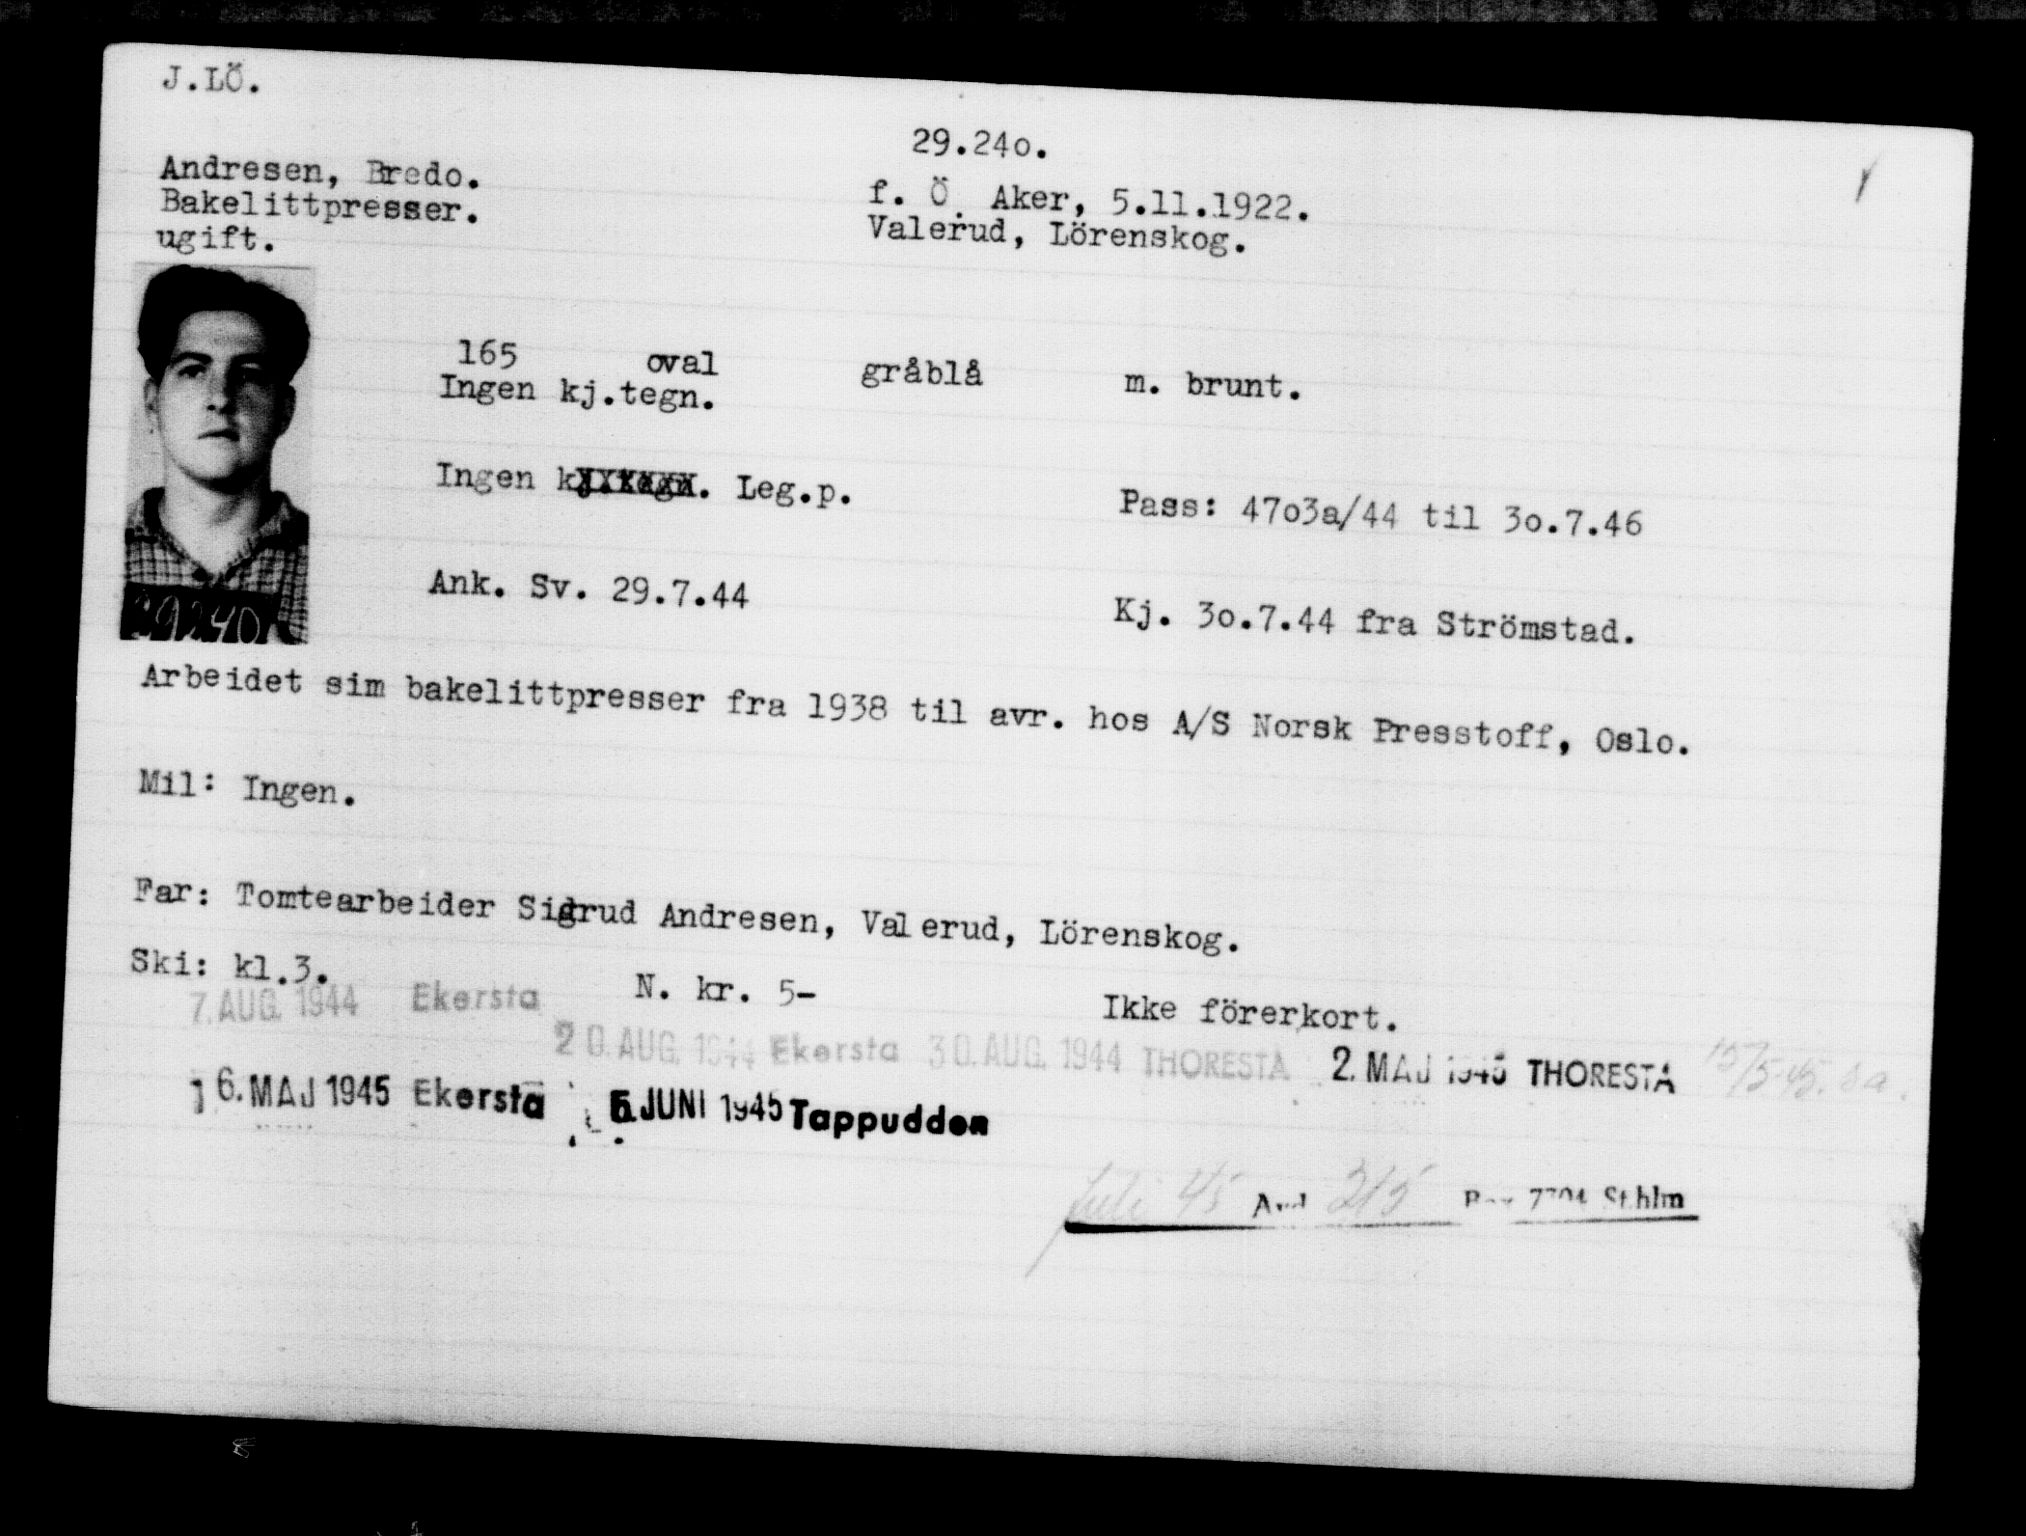 J.LÖ.
29.24o.
Andresen, Bredo.
f. Ö. Aker, 5.11.1922.
Bakelittpresser.
Valerud, Lörenskog.
ugift.
165 oval gråblå m. brunt.
Ingen kj.tegn.
Ingen Leg.p. Pass: 47o3a/44 til 3o.7.46
Ank. Sv. 29.7.44 Kj. 3o.7.44 fra Strömstad.
29240
Arbeidet sim bakelittpresser fra 1938 til avr. hos A/S Norsk Presstoff, Oslo.
Mil: Ingen.
Far: Tomtearbeider Sigrud Andresen, Valerud, Lörenskog.
Ski: kl.3. N. kr. 5- Ikke förerkort.
7. AUG. 1944 Ekersta
20. AUG. 1944 Ekersta 30. AUG. 1944 THORESTA 2. MAJ 1945 THORESTA
16. MAJ 1945 Ekersta 5 JUNI 1945 Tappudden
Juli 45 Avd 215 Box 7704 St.hlm